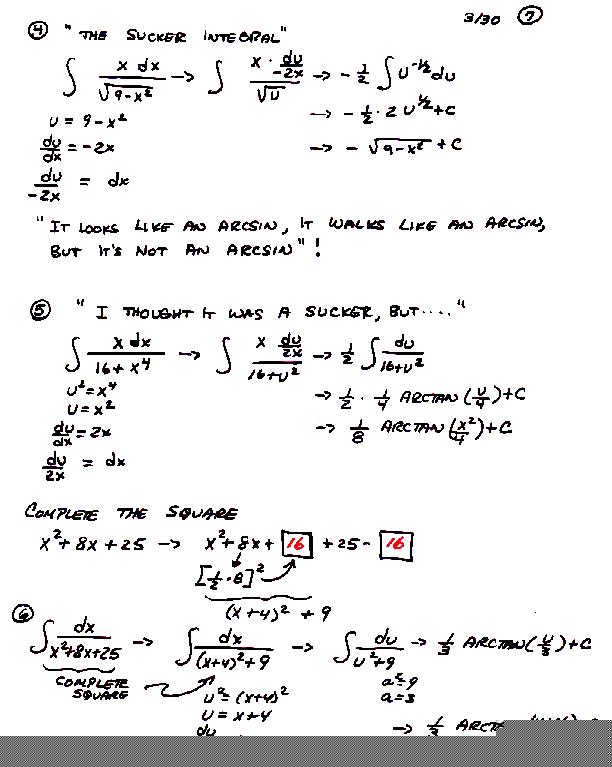 3/30 ⑦
④ "THE SUCKER INTEGRAL"
∫ x dx / √(9-x²) → ∫ x · (du/-2x) / √u → -½ ∫ u^(-½) du
u = 9-x² → -½ · 2 u^(½) + C
du/dx = -2x → - √(9-x²) + C
du/-2x = dx
"IT LOOKS LIKE AN ARCSIN, IT WALKS LIKE AN ARCSIN,
BUT IT'S NOT AN ARCSIN"!
⑤ "I THOUGHT IT WAS A SUCKER, BUT...."
∫ x dx / (16+x⁴) → ∫ x (du/2x) / (16+u²) → ½ ∫ du / (16+u²)
u² = x⁴ → ½ · ¼ ARCTAN(u/4)+C
u = x²
du/dx = 2x → ⅛ ARCTAN(x²/4)+C
du/2x = dx
COMPLETE THE SQUARE
x²+8x+25 → x²+8x+ 16 +25- 16
[½·8]²
(x+4)² + 9
⑥ ∫ dx / (x²+8x+25) → ∫ dx / ((x+4)²+9) → ∫ du / (u²+9) → ⅓ ARCTAN(u/3)+C
COMPLETE SQUARE
u² = (x+4)² a²=9
u = x+4 a=3
du → ⅓